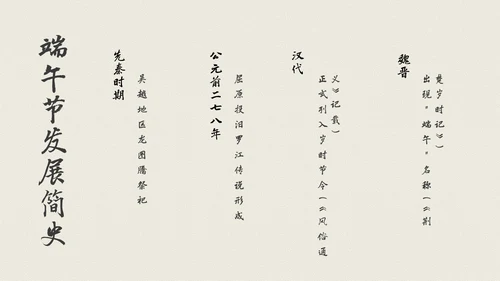 端午节发展简史
先秦时期
吴越地区龙图腾祭祀
公元前二七八年
屈原投汨罗江传说形成
汉代
正式列入岁时节令(《风俗通
义》记载)
魏晋
出现“端午”名称(《荆
楚岁时记》)